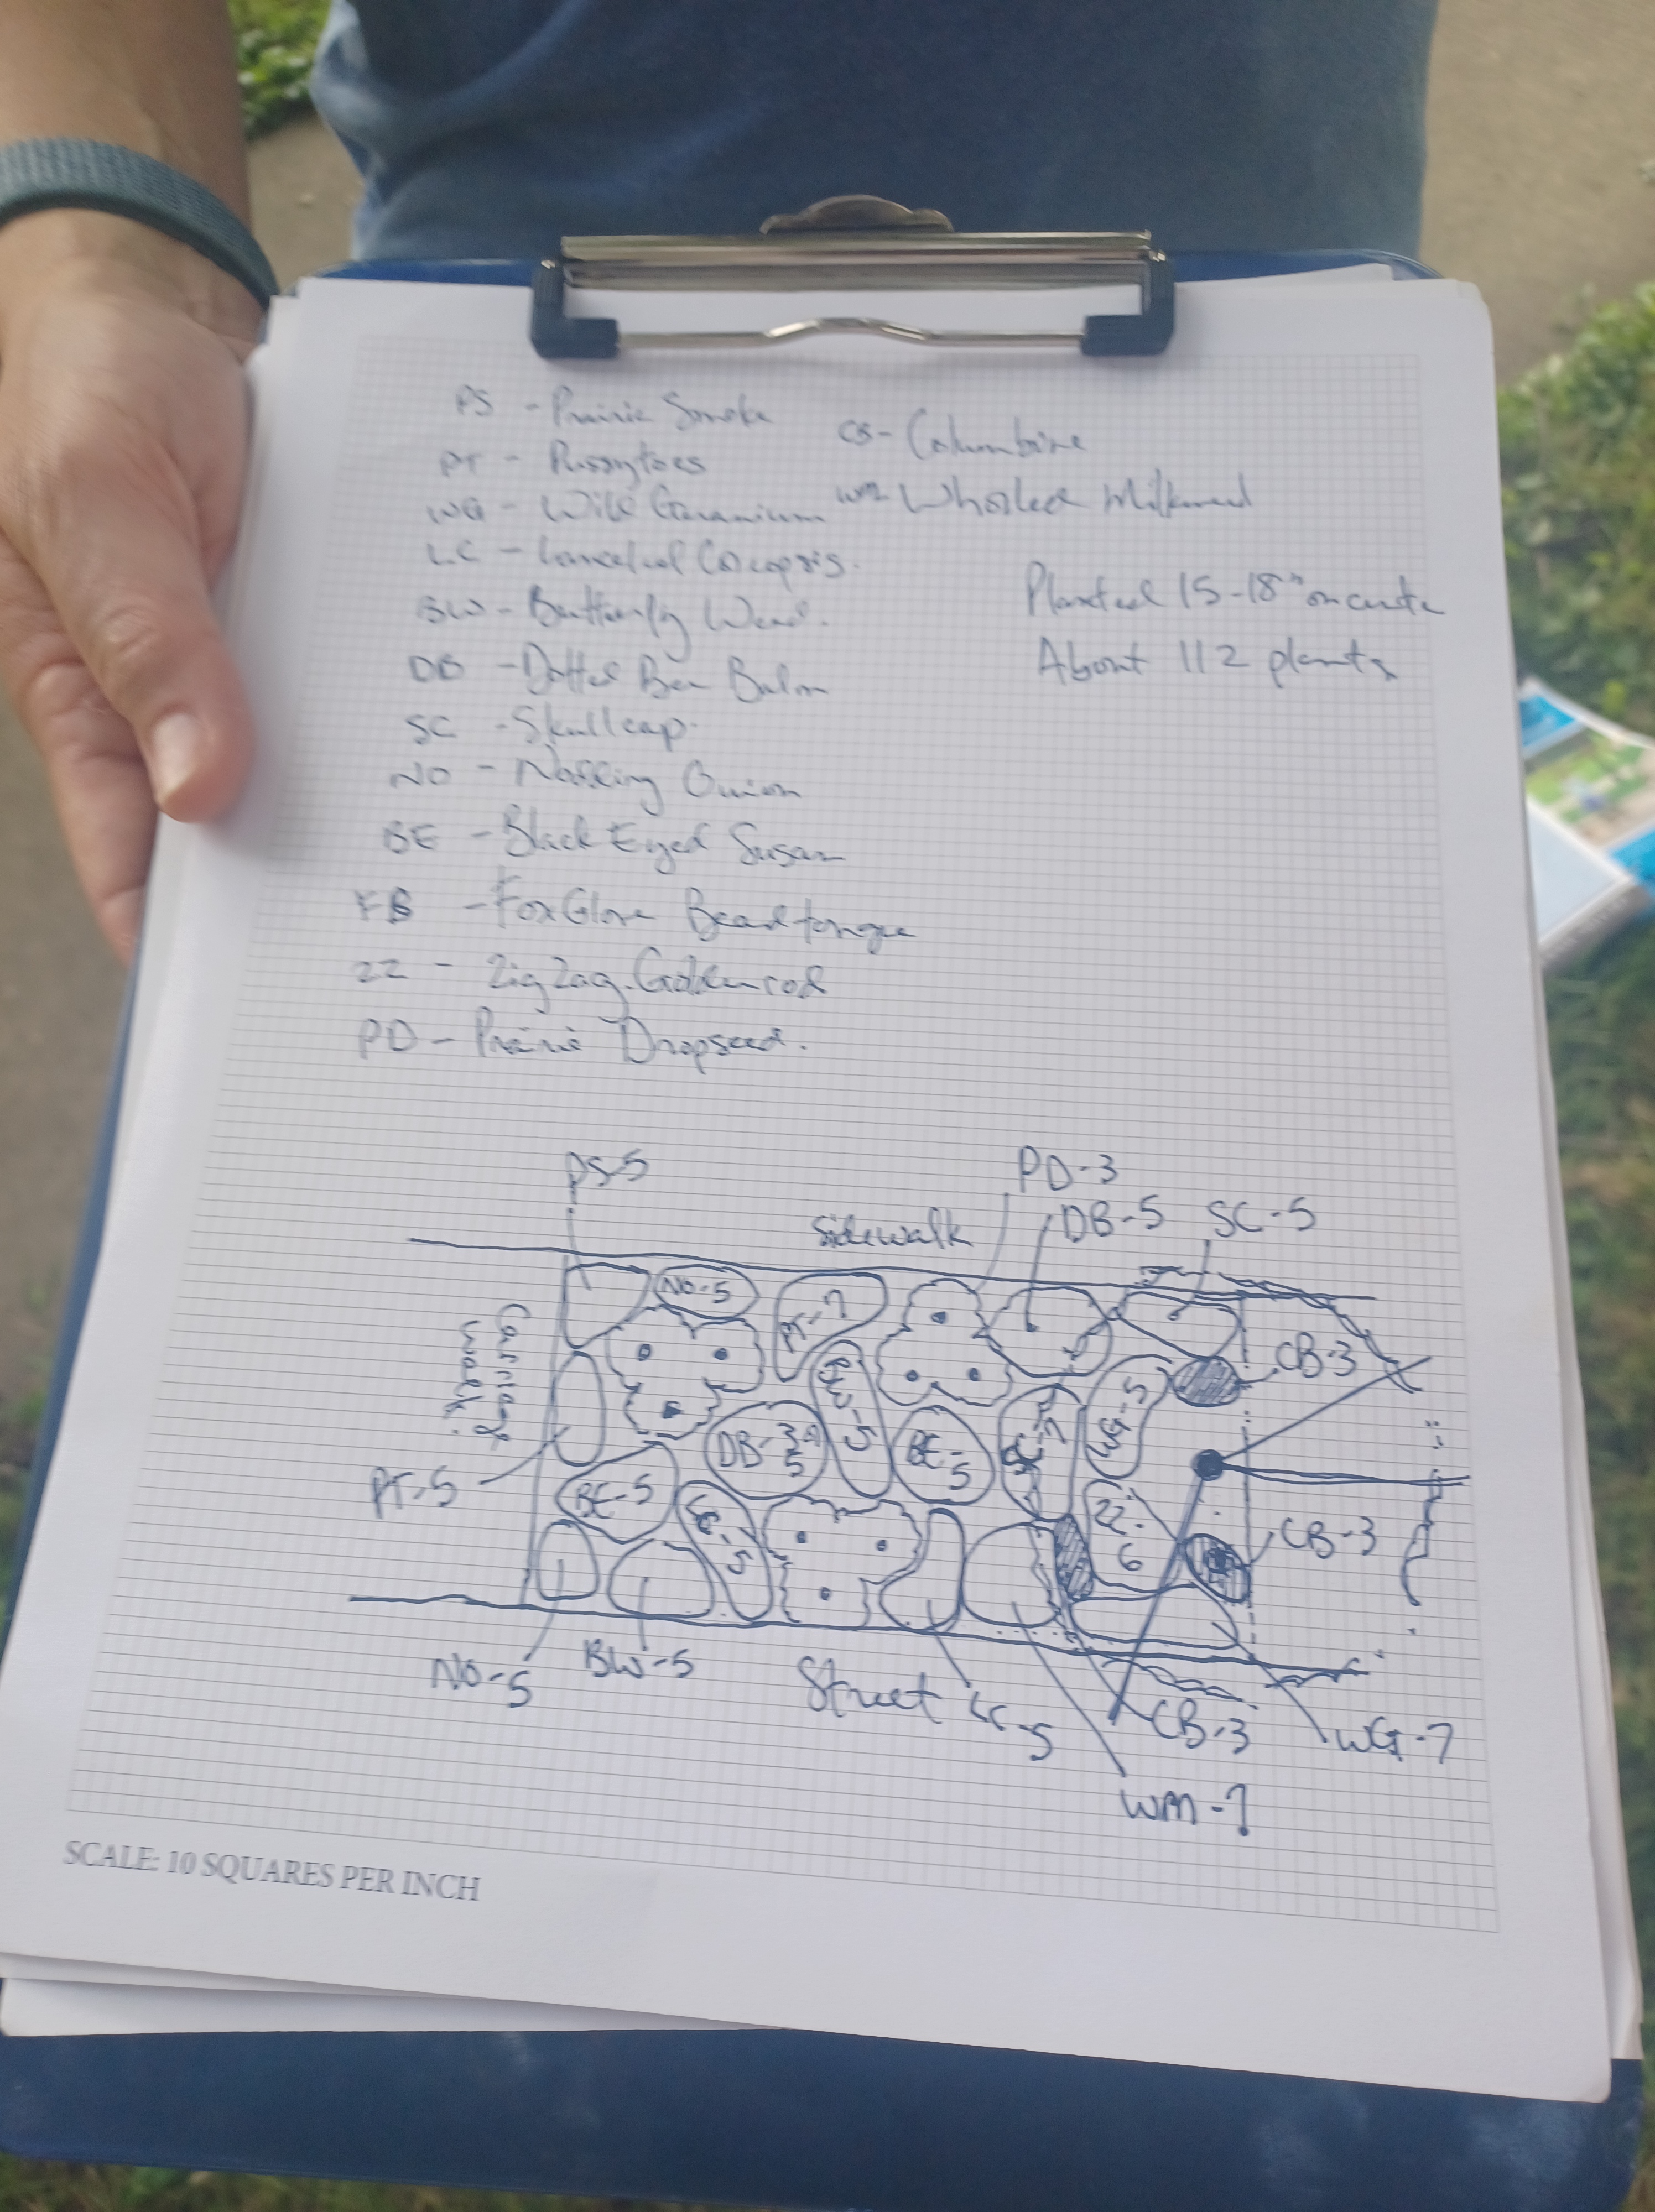 PS - Prairie Smoke
PT - Pussytoes
WG - Wild Geranium
LC - Lanceleaf Coreopsis.
BW - Butterfly Weed.
DB - Dotted Bee Balm
SC - Skullcap.
NO - Nodding Onion
BE - Black Eyed Susan
FB - Fox Glove Beardtongue
ZZ - Zig Zag Goldenrod
PD - Prairie Dropseed.
CB - Columbine
WM - Whorled Milkweed
Planted 15-18" on center
About 112 plants
PS-5
PD-3
Sidewalk
DB-5
SC-5
NO-5
PT-7
Carriage
walk.
CB-3
WG-5
DB-3
5
BE-5
PT-5
BE-5
ZZ-
6
CB-3
NO-5
BW-5
Street
LC-5
CB-3
WG-7
WM-7
SCALE: 10 SQUARES PER INCH